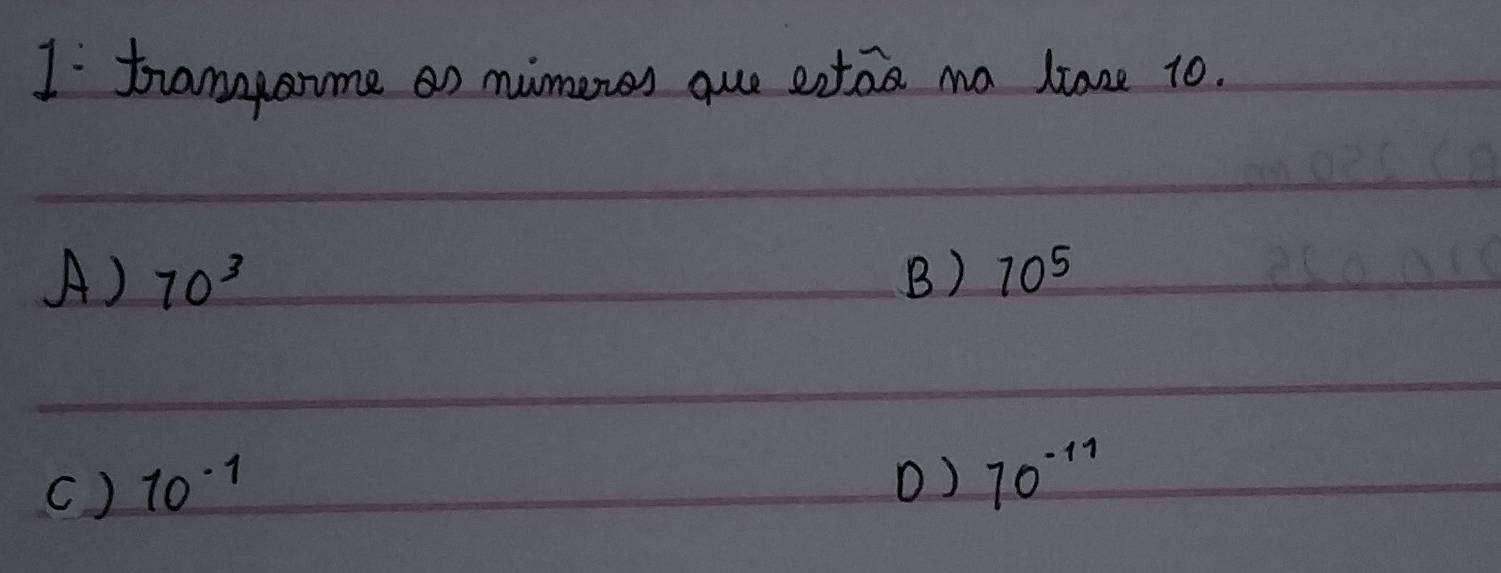 1- transforme os números que estão na base 10.
A) 10³ B) 10⁵
C) 10⁻¹ D) 10⁻¹¹